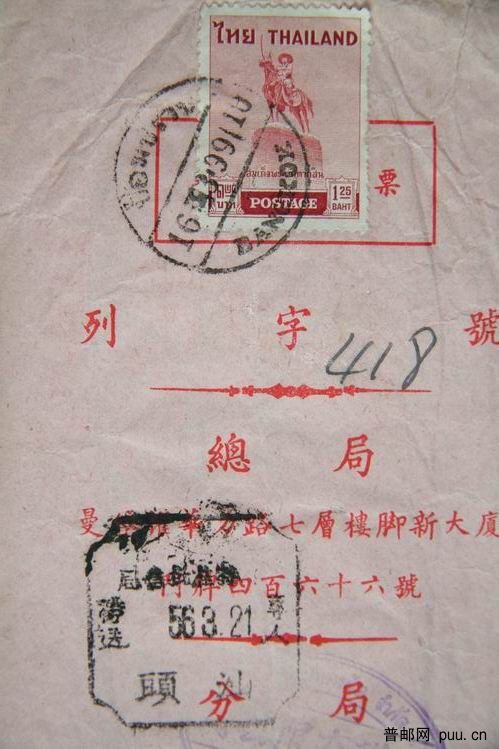 ไทย THAILAND
1.25
BAHT
บาท POSTAGE
BANGKOK
票
列 字 號
418
總局
七層樓脚新大厦
門牌四百六十六號
批信局
帶送
專人
56.3.21
汕頭
分局
普邮网 puu.cn